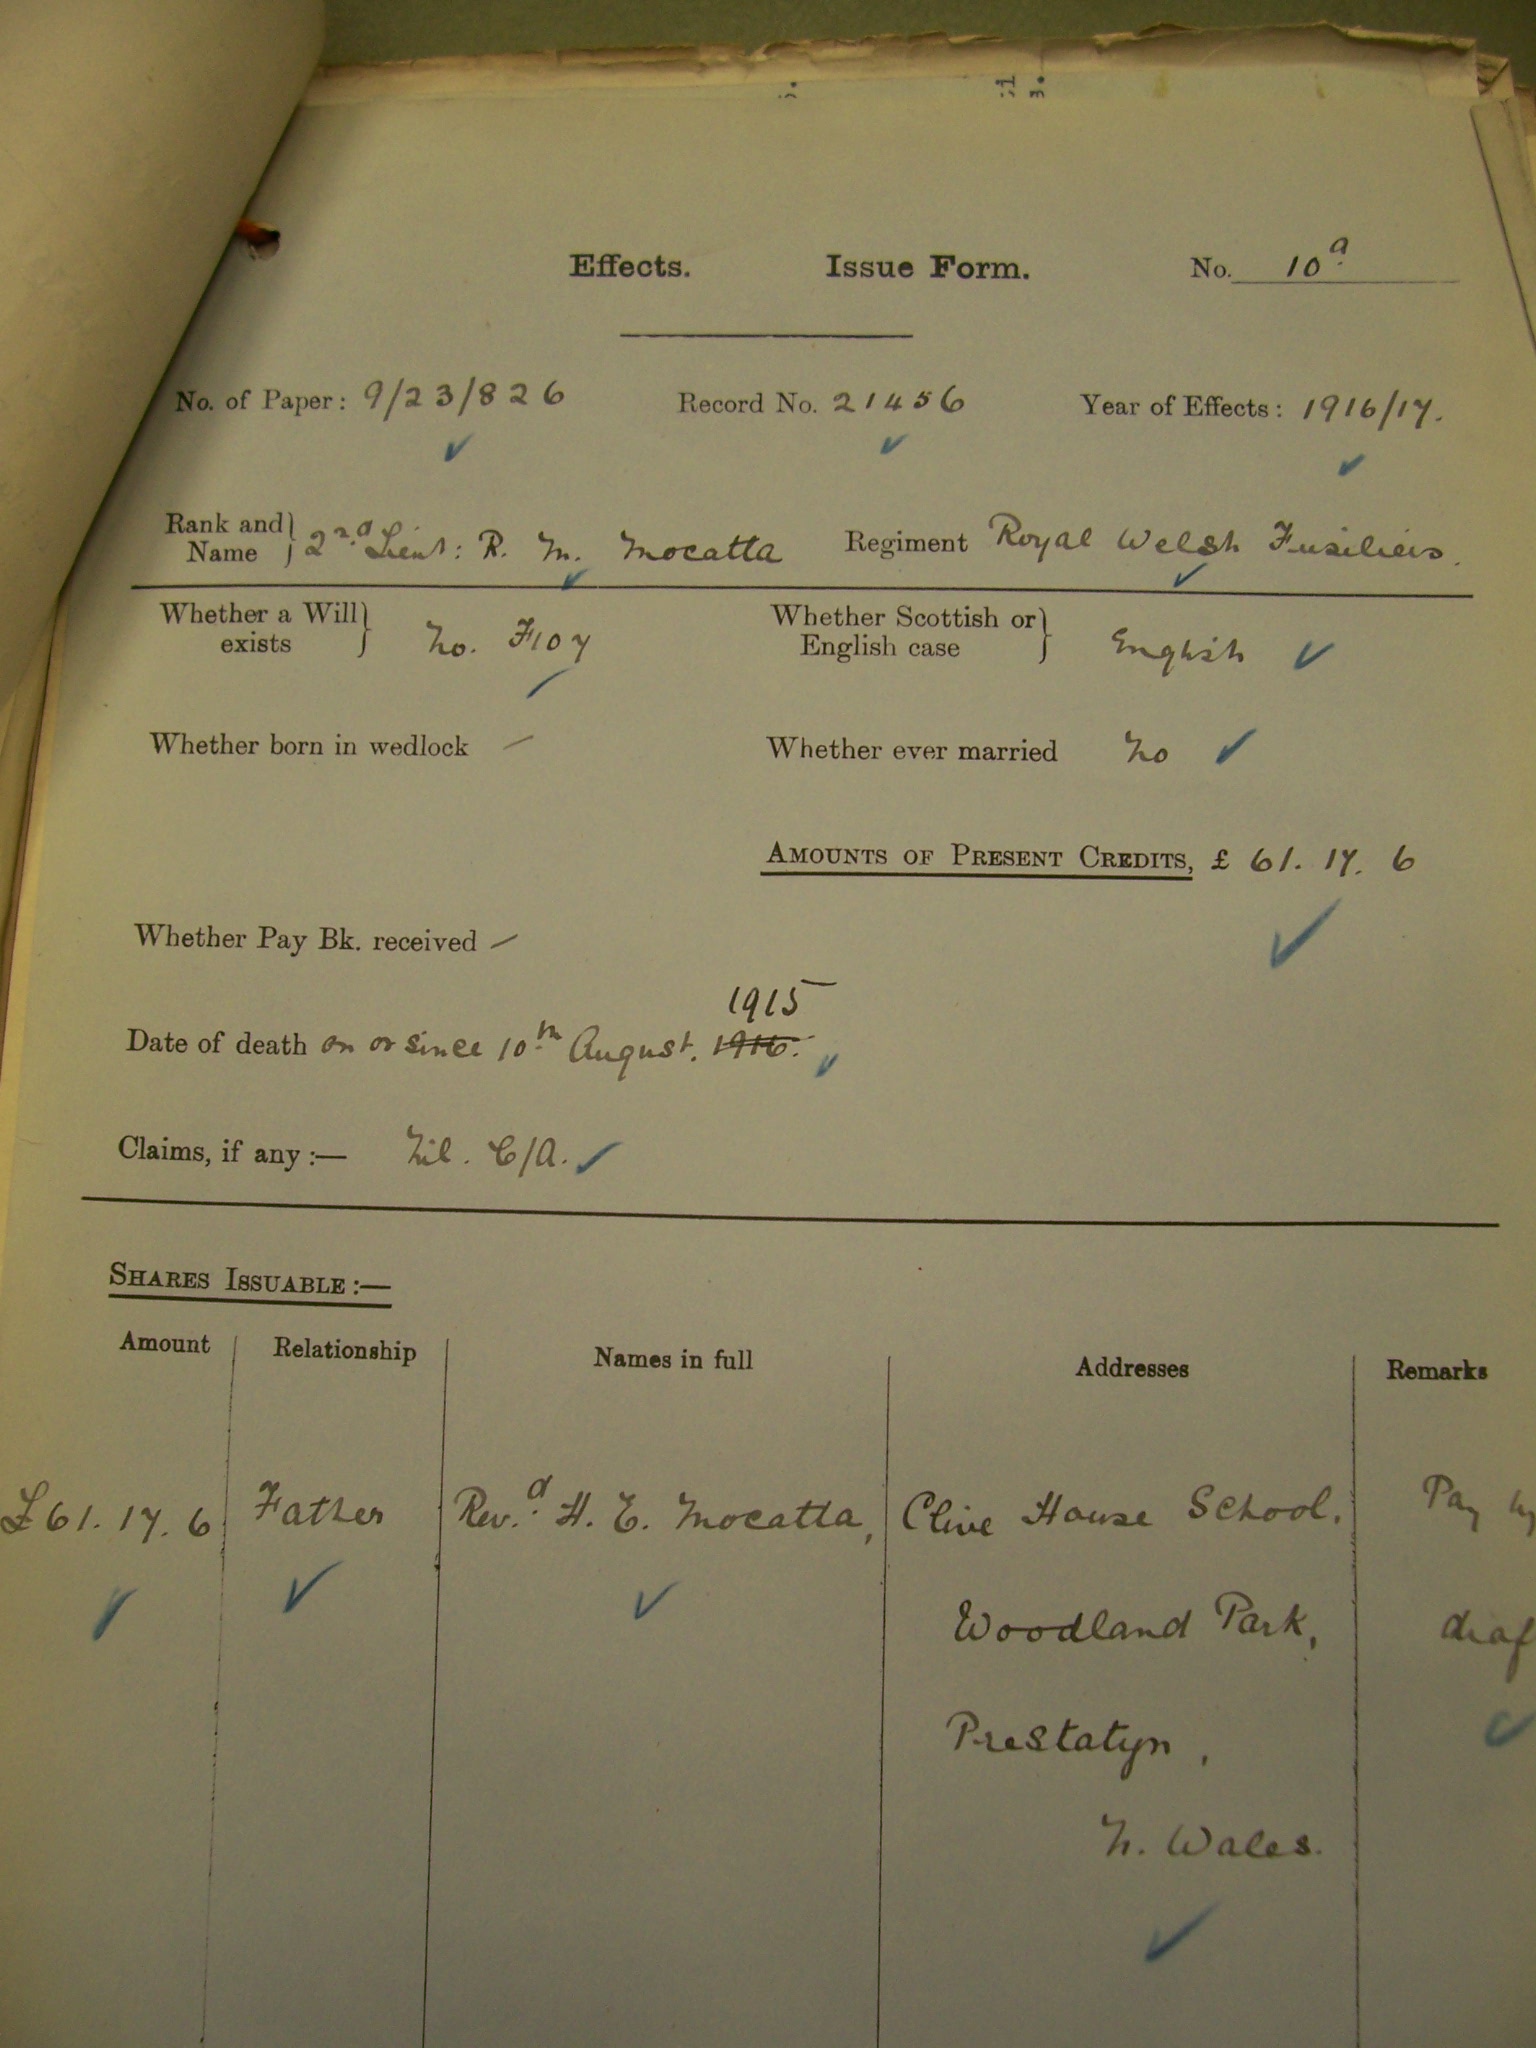 Effects. Issue Form. No. 10a.
No. of Paper: 9/23/826 Record No. 21456 Year of Effects: 1916/17.
Rank and Name } 2nd Lieut: R. M. Mocatta Regiment Royal Welsh Fusiliers.
Whether a Will exists } No. F107 Whether Scottish or English case } English
Whether born in wedlock — Whether ever married No
Amounts of Present Credits, £ 61. 17. 6
Whether Pay Bk. received —
1915
Date of death on or since 10th August. 1916.
Claims, if any :— Nil. C/A.
Shares Issuable :—
Amount Relationship Names in full Addresses Remarks
£61. 17. 6 Father Revd. H. E. Mocatta, Clive House School. Pay by
Woodland Park, draf
Prestatyn,
N. Wales.